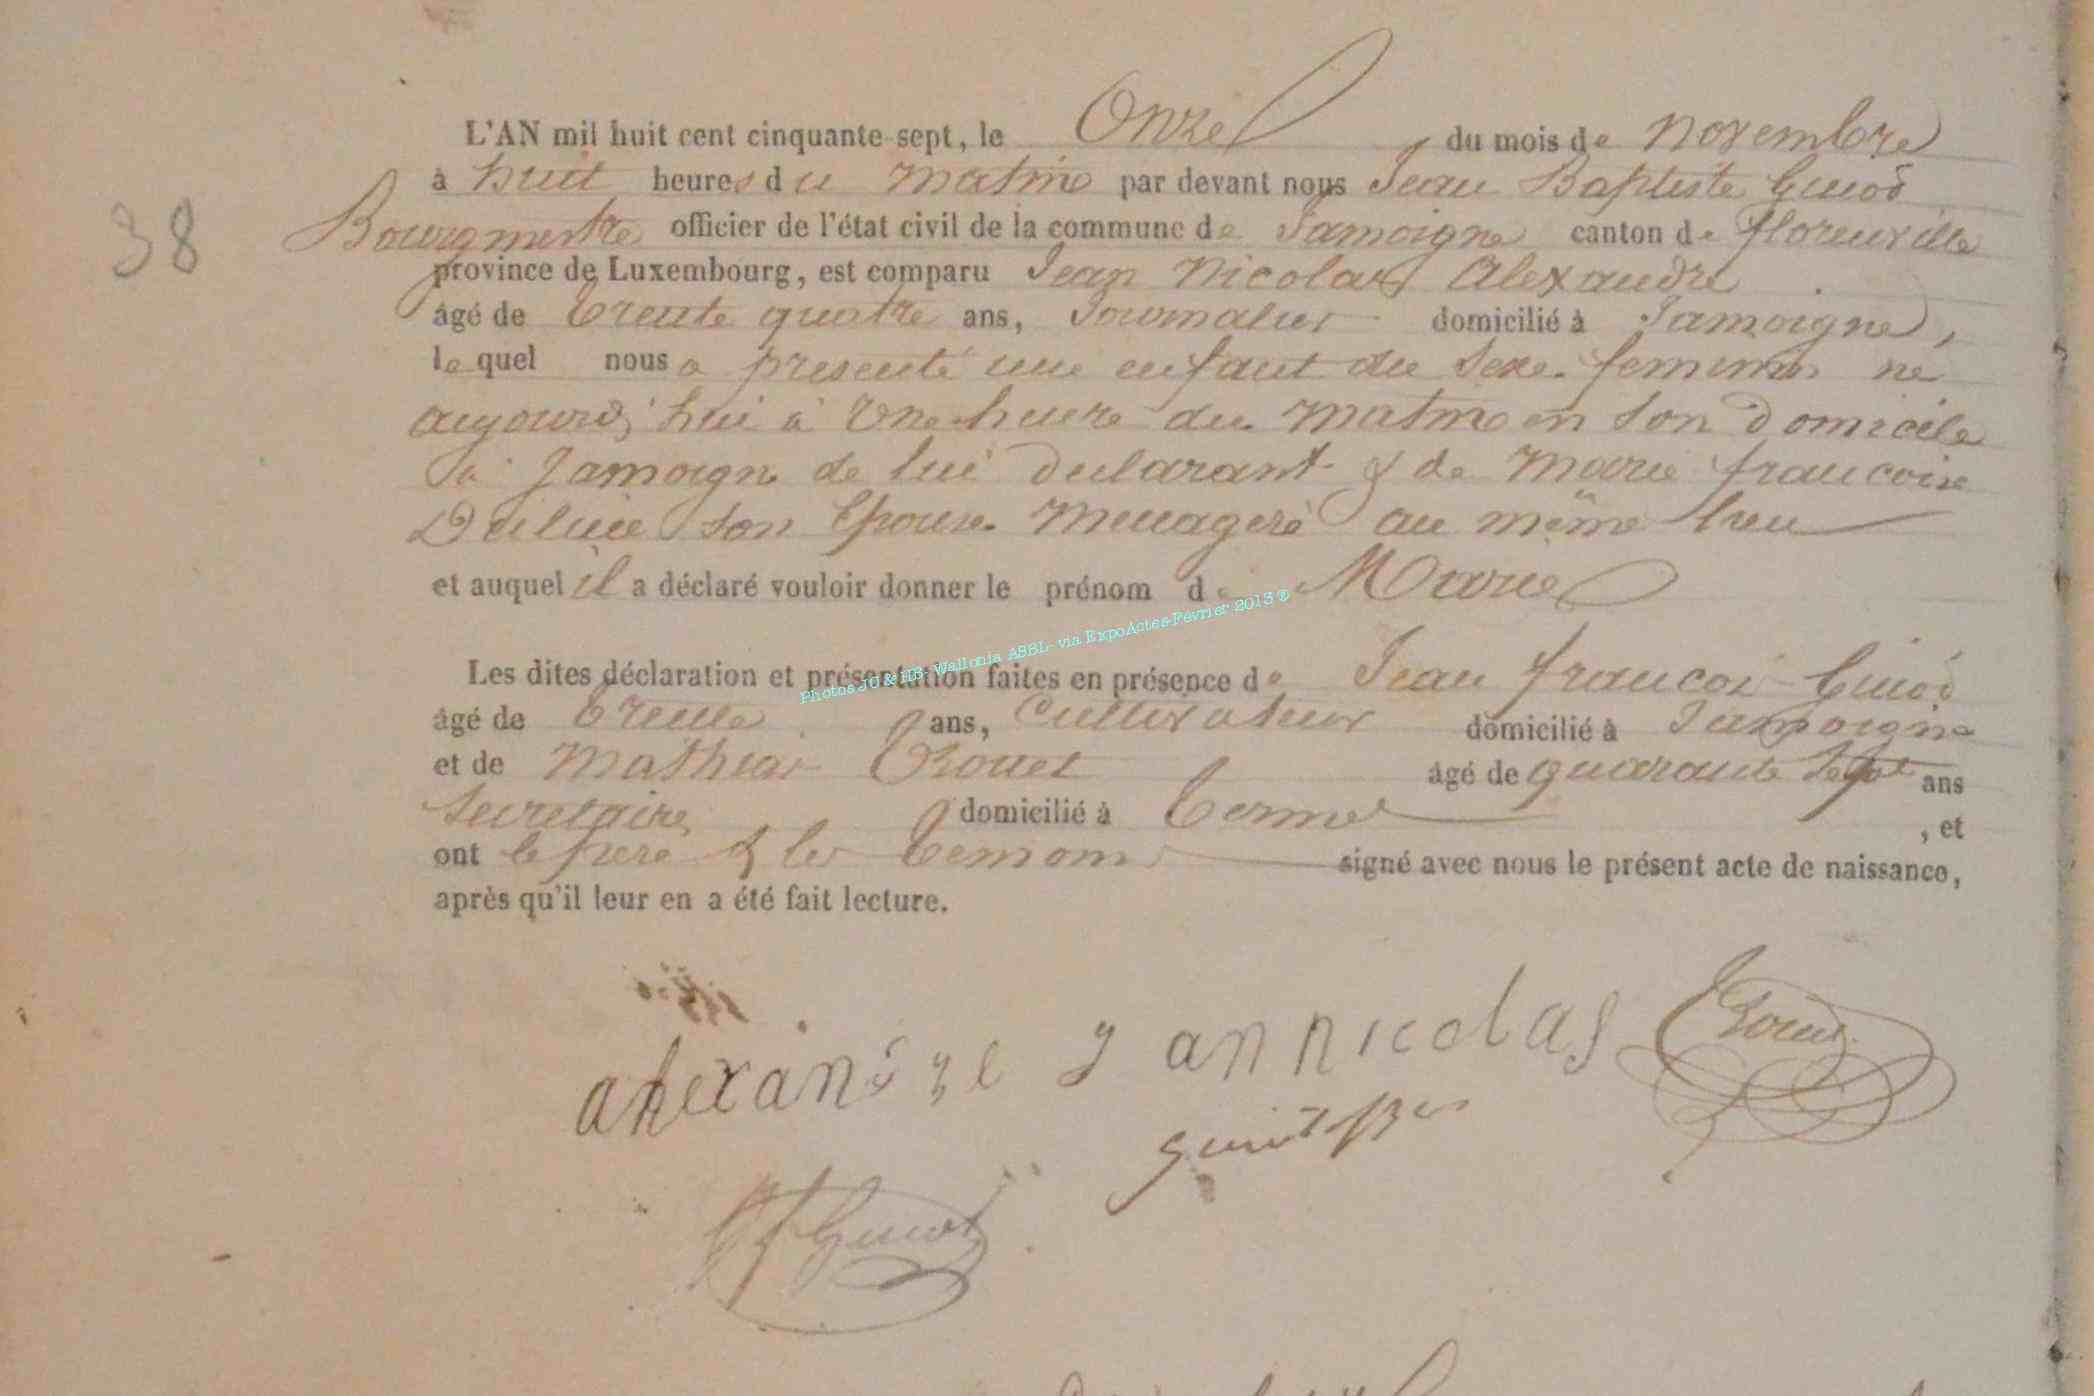 L'AN mil huit cent cinquante-sept, le Onze du mois de Novembre
à huit heures du matin par devant nous Jean Baptiste Guiot
38
Bourgmestre officier de l'état civil de la commune de Jamoigne canton de florenville
province de Luxembourg, est comparu Jean Nicolas Alexandre
âgé de trente quatre ans, Journalier domicilié à Jamoigne,
lequel nous a presenté une enfant du sexe feminin né
aujourd'hui à Une heure du matin en son domicile
à Jamoign de lui declarant & de Marie francoise
son Epouse Menagere au même lieu
et auquel il a déclaré vouloir donner le prénom de Marie
Photos JC & HB- Wallonia ASBL- via ExpoActes-Fevrier 2013 ®
Les dites déclaration et présentation faites en présence de Jean francois Guiot
âgé de trente ans, Cultivateur domicilié à Jamoigne
et de Mathias âgé de quarante sept ans
Secretaire domicilié à Termes , et
ont le père & les temoins signé avec nous le présent acte de naissance,
après qu'il leur en a été fait lecture.
alexandre J an nicolas
Guiot